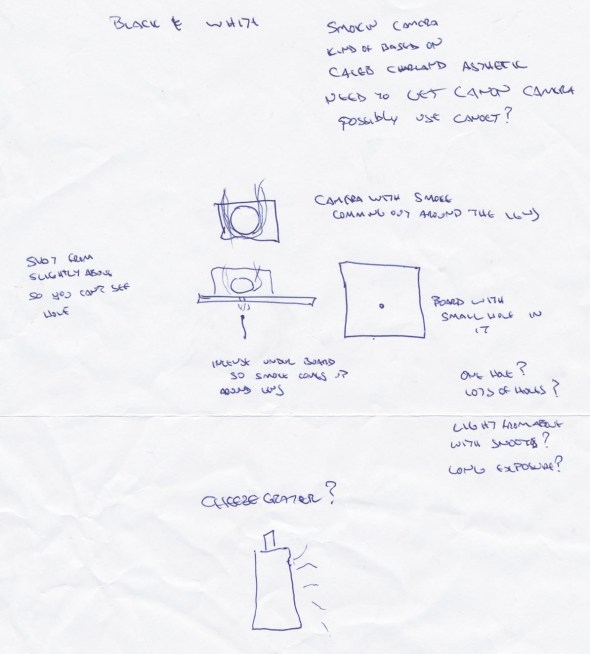 BLACK & WHITE
SMOKIN CAMERA
KIND OF BASED ON
CALEB CHARLAND ASTHETIK
NEED TO GET CANON CAMERA
POSSIBLY USE CANOET?
CAMERA WITH SMOKE
COMMING OUT AROUND THE LENS
SHOT FROM
SLIGHTLY ABOVE
SO YOU CAN'T SEE
HOLE
BOARD WITH
SMALL HOLE IN
IT
INCENSE UNDER BOARD
SO SMOKE COMES UP
AROUND LENS
ONE HOLE?
LOTS OF HOLES?
LIGHT FROM ABOVE
WITH SNOOTS?
LONG EXPOSURE?
CHEEZE GRATER?